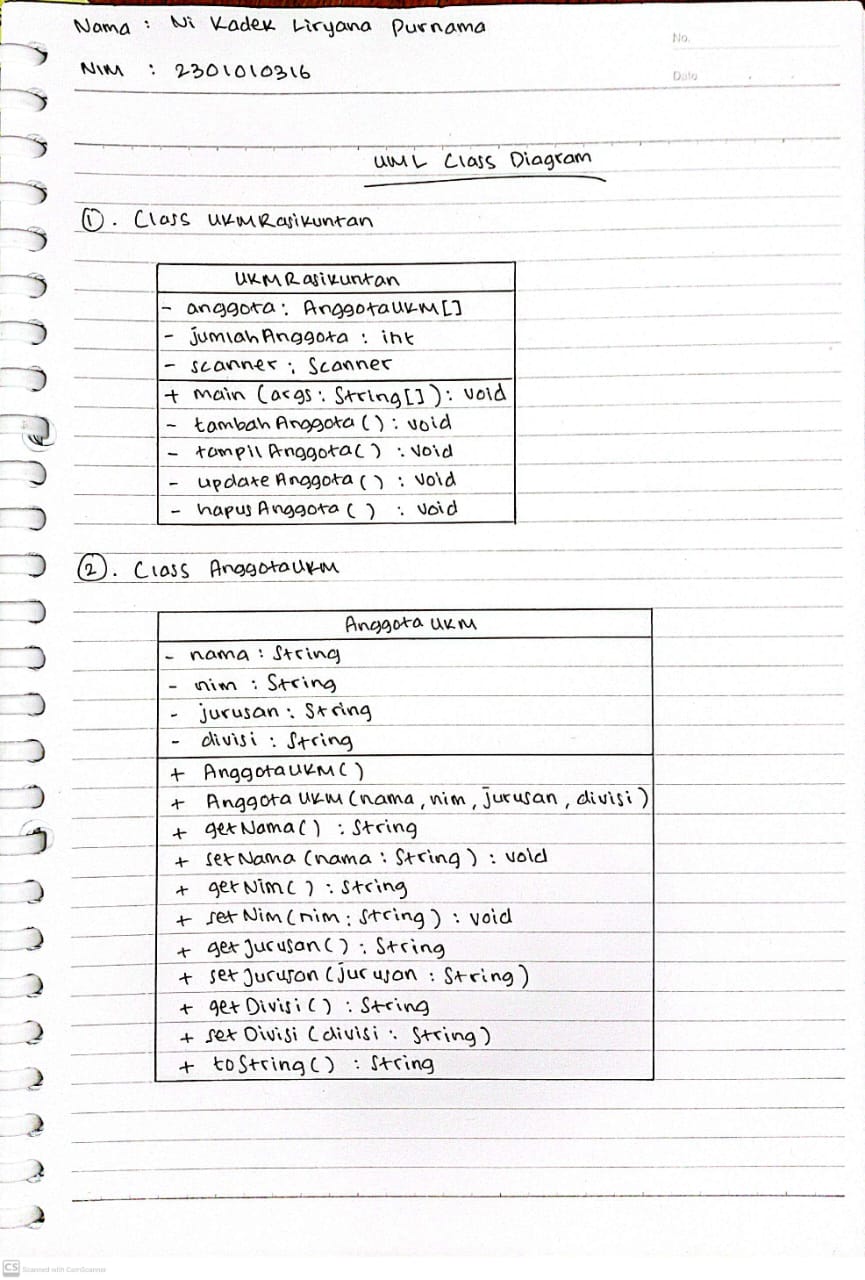 Nama : Ni Kadek Liryana Purnama
No.
NIM : 2301010316
Date
UML Class Diagram
①. Class UKMRasikuntan
UKMRasikuntan
- anggota : AnggotaUKM[]
- jumlahAnggota : int
- scanner : Scanner
+ main (args : String[]) : void
- tambahAnggota () : void
- tampilAnggota() : void
- updateAnggota () : void
- hapusAnggota () : void
②. Class AnggotaUKM
AnggotaUKM
- nama : String
- nim : String
- jurusan : String
- divisi : String
+ AnggotaUKM()
+ AnggotaUKM(nama, nim, jurusan, divisi)
+ getNama() : String
+ setNama (nama : String) : void
+ getNim() : String
+ setNim(nim : String) : void
+ getJurusan() : String
+ setJurusan (jurusan : String)
+ getDivisi() : String
+ setDivisi (divisi : String)
+ toString() : String
CS Scanned with CamScanner